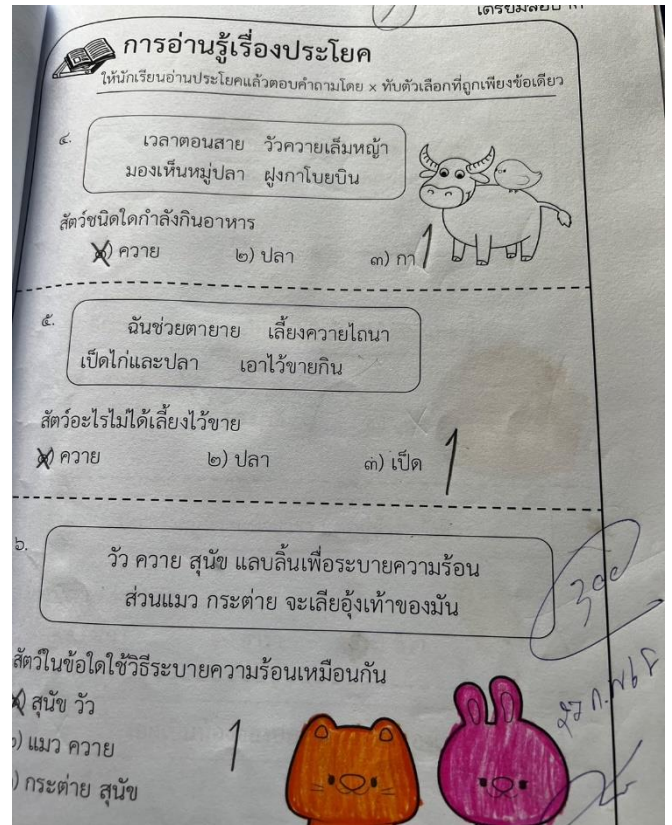 เตรียมสอบ
การอ่านรู้เรื่องประโยค
ให้นักเรียนอ่านประโยคแล้วตอบคำถามโดย × ทับตัวเลือกที่ถูกเพียงข้อเดียว
๔.
เวลาตอนสาย วัวควายเล็มหญ้า
มองเห็นหมู่ปลา ฝูงกาโบยบิน
สัตว์ชนิดใดกำลังกินอาหาร
๑) ควาย ๒) ปลา ๓) กา 1
๕.
ฉันช่วยตายาย เลี้ยงควายไถนา
เป็ดไก่และปลา เอาไว้ขายกิน
สัตว์อะไรไม่ได้เลี้ยงไว้ขาย
๑) ควาย ๒) ปลา ๓) เป็ด 1
๖.
วัว ควาย สุนัข แลบลิ้นเพื่อระบายความร้อน
ส่วนแมว กระต่าย จะเลียอุ้งเท้าของมัน
สัตว์ในข้อใดใช้วิธีระบายความร้อนเหมือนกัน
สุนัข วัว
) แมว ควาย 1
) กระต่าย สุนัข